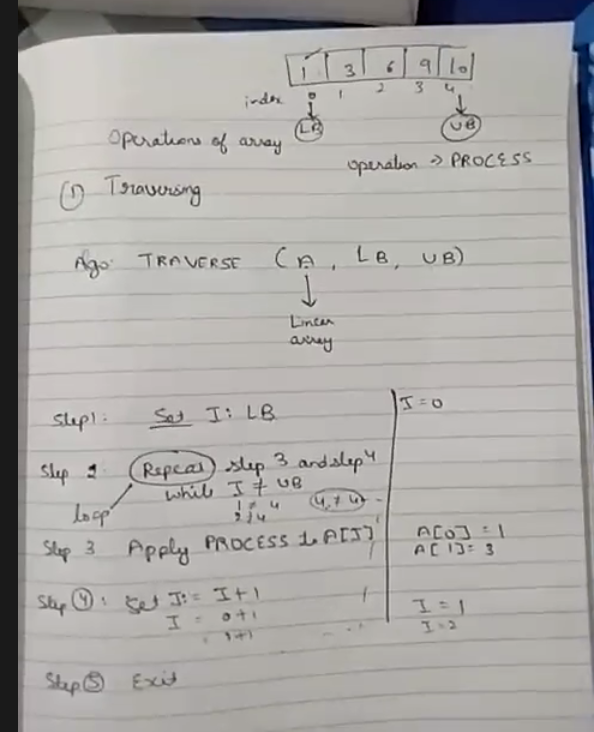 1 3 6 9 10
index 0 1 2 3 4
LB UB
Operations of array
operation → PROCESS
① Traversing
Algo: TRAVERSE (A, LB, UB)
Linear
array
Step1: Set I: LB
I = 0
Step 2 Repeat step 3 and step 4
while I ≠ UB
1 ≠ 4 4 ≠ 4
2 ≠ 4
loop
Step 3 Apply PROCESS to A[I]
A[0] = 1
A[1] = 3
Step ④: Set I: = I+1
I = 0+1
1+1
I = 1
I = 2
Step ⑤ Exit